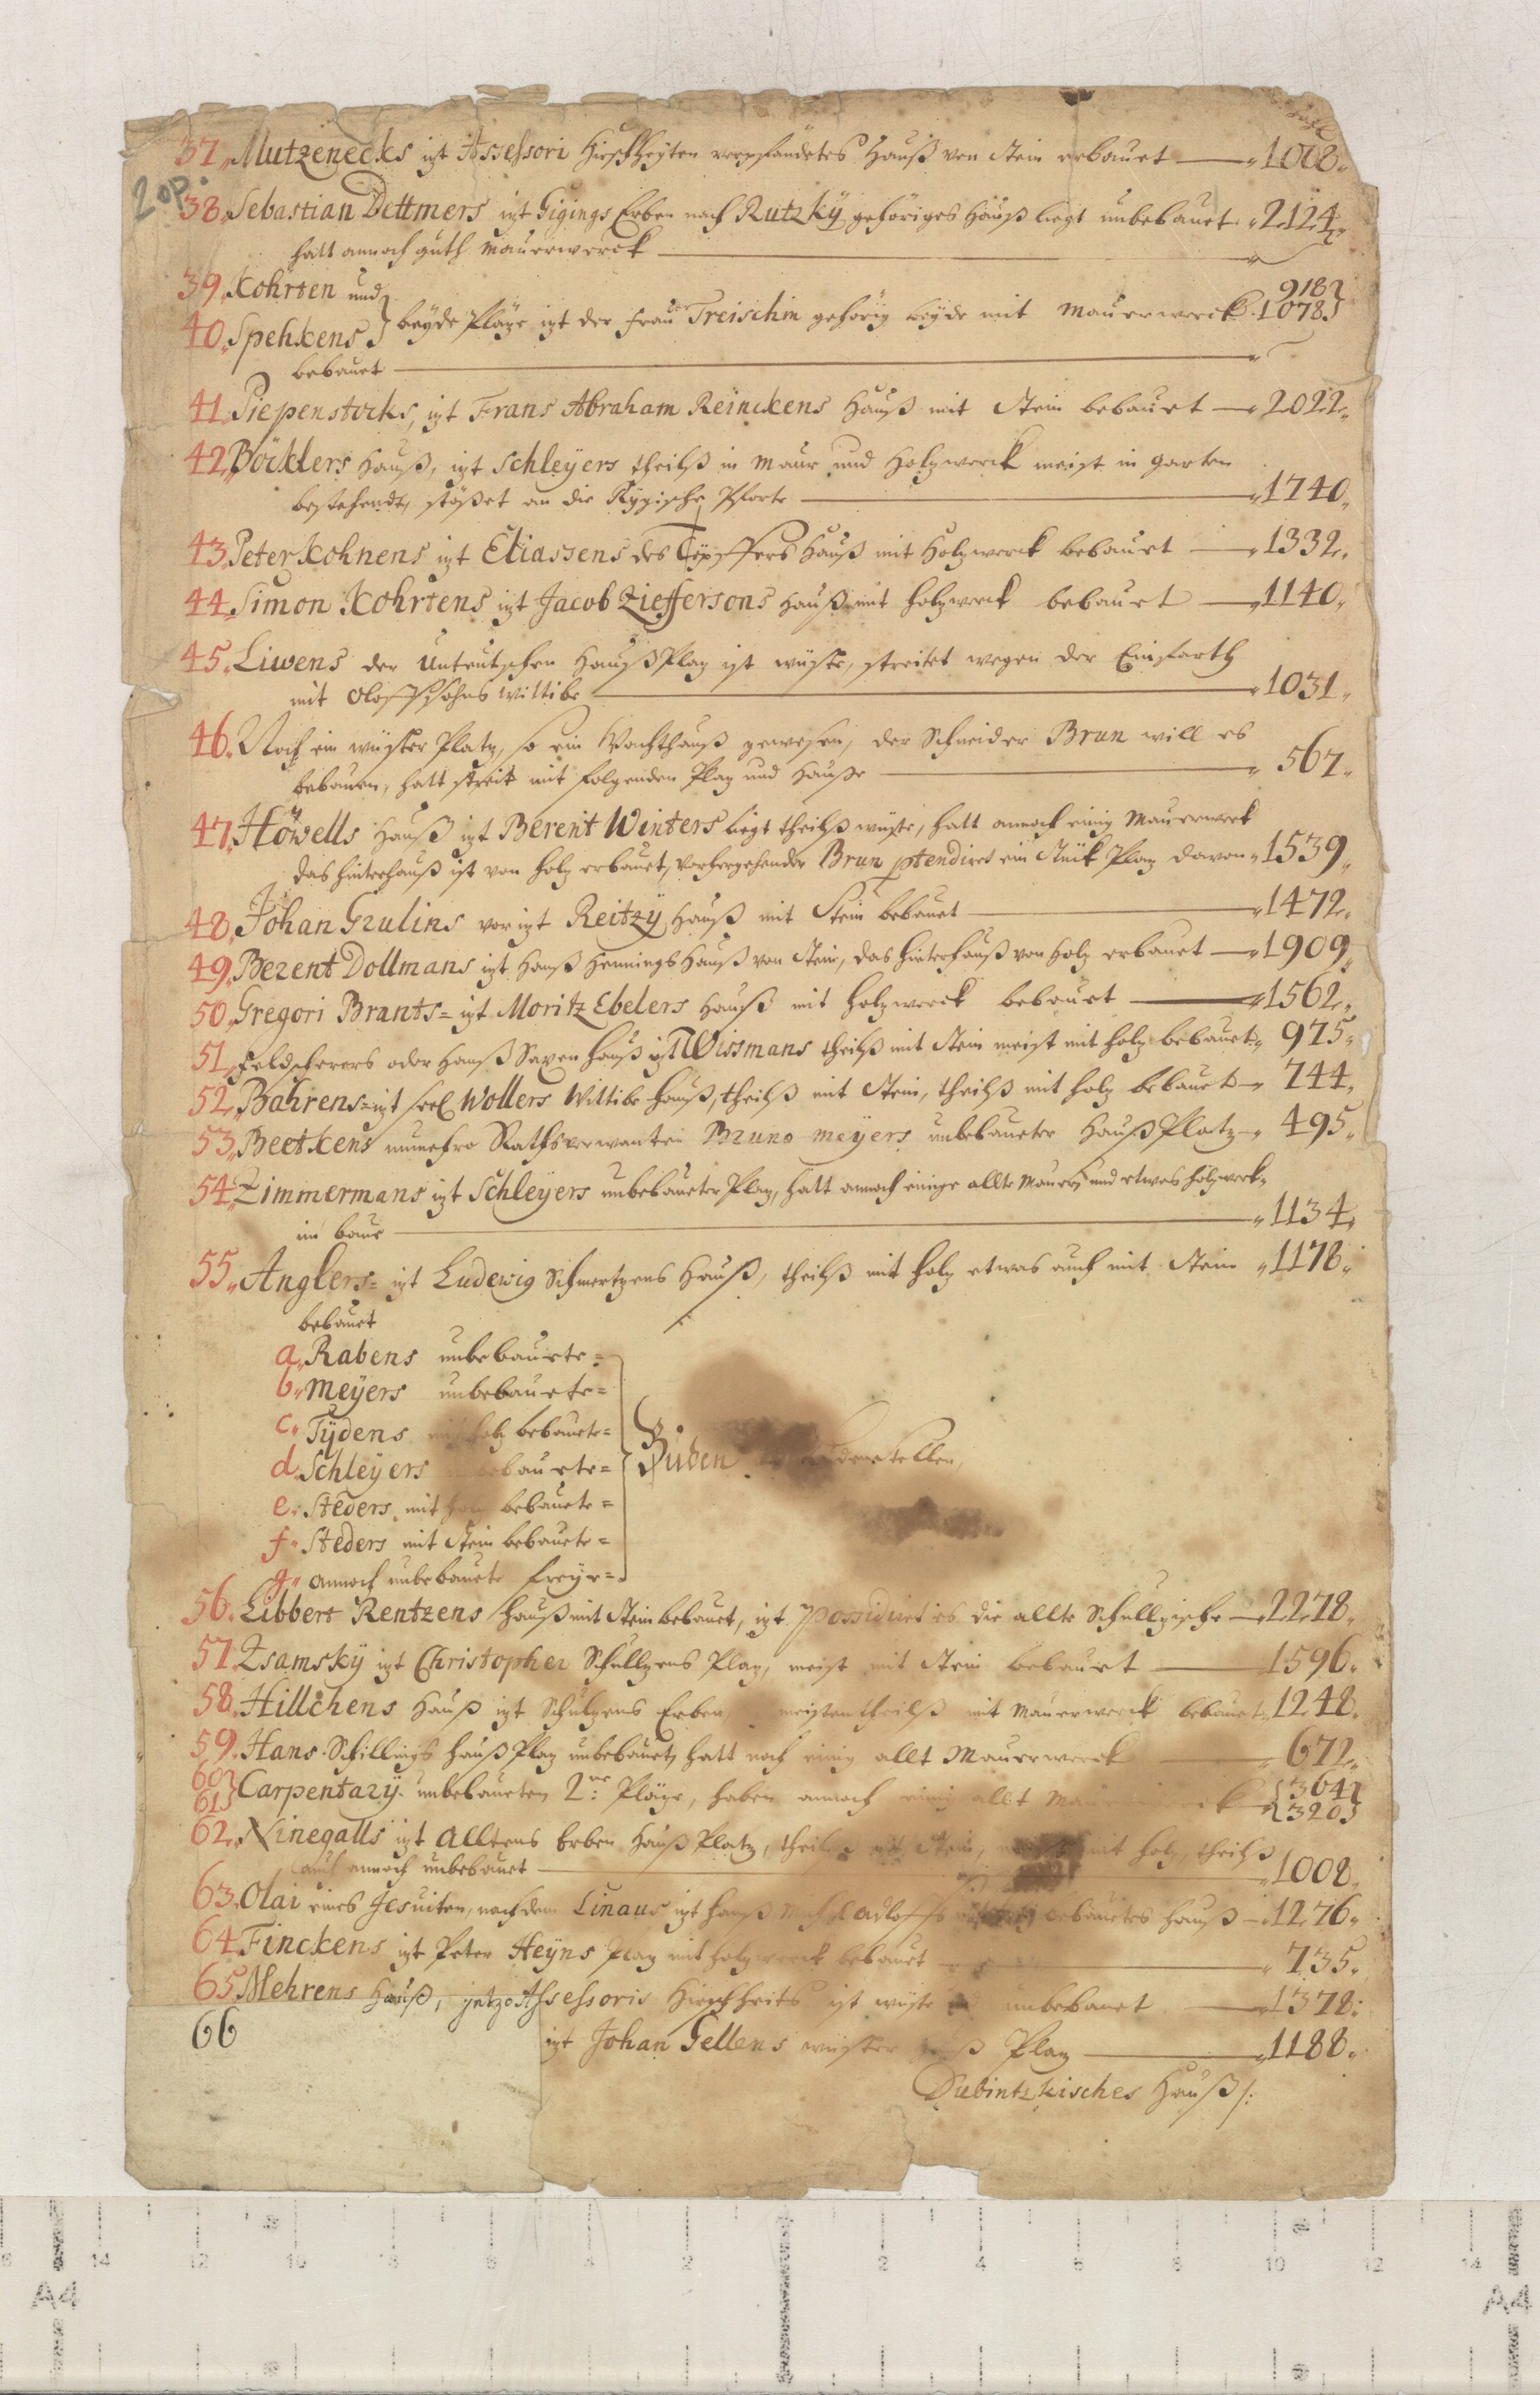 37. Mutzenecks izt Assessori Hirschheyten verpfändetes Hauß von Stein erbauet — 1008.
20p.
38. Sebastian Dettmers izt Gigings Erben nach Rutzkÿ gehöriges Hauß liegt unbebauet. 2124.
hatt annoch guth Mauerwerck —
39. Kohrten und
40. Spehkens } beyde Pläze izt der Frau Treischin gehörig beyde mit Mauerwerck. 918 1078 }
bebauet —
41. Piepenstocks, izt Frans Abraham Reinckens Hauß mit Stein bebauet — 2022.
42. Böcklers Hauß, izt Schleÿers theilß in Maur und Holzwerck meist in Garten
bestehendt, stößet an die Rigische Pforte — 1740.
43. Peter Kohnens izt Eliassens des Töpffers Hauß mit Holzwerck bebauet — 1332.
44. Simon Kohrtens izt Jacob Zieffersons Hauß mit Holzwerck bebauet — 1140.
45. Liwens der Unteutschen Hauß Plaz ist wüste, streitet wegen der Einfarth
mit Oloffsohns Wittibe — 1031.
46. Noch ein wüster Platz, so ein Wachthauß gewesen, der Schneider Brun will es
bebauen, hatt streit mit folgenden Plaz und Hauße — 567.
47. Höwells Hauß izt Berent Winters liegt theilß wüste, hatt annoch einig Mauerwerk
das hinterhauß ist von holz erbauet, vorhergehender Brun ptendiret ein Stük Plaz davon 1539.
48. Johan Grulins vor izt Reitzÿ Hauß mit Stein bebauet — 1472.
49. Berent Dollmans izt Hanß Hennings Hauß von Stein, das hinterhauß von Holz erbauet — 1909.
50. Gregori Brants= izt Moritz Ebelers Hauß mit holzwerck bebauet — 1562.
51. Feldscherers oder Hanß Saxen Hauß izt Wissmans theilß mit Stein meist mit holz bebauet. 975.
52. Bahrens= izt seel Wollers Wittibe Hauß, theilß mit Stein, theilß mit holz bebauet — 744.
53. Beetkens nunmehro Rathsverwanten Bruno Meyers unbebaueter Hauß Platz — 495.
54. Zimmermans izt Schleÿers unbebaueter Plaz, hatt annoch einige allte Mauern und etwas holzwerk
im baue — 1134.
55. Anglers= izt Ludewig Schmertzens Hauß, theilß mit holz etwas auch mit Stein 1178.
bebauet
a. Rabens unbebauete=
b. Meÿers unbebauete=
c. Tÿdens mit holz bebauete=
d. Schleÿers bebauete=
Buden
e. Steders mit holz bebauete=
f. Steders mit Stein bebauete=
g. annoch unbebauete freÿe=
56. Libbert Rentzens Hauß mit Stein bebauet, izt possidiret es die allte Schullzische — 2278.
57. Zsamskÿ izt Christopher Schullzens Plaz, meist mit Stein bebauet — 1596.
58. Hillchens Hauß izt Schulzens Erben meistentheilß mit Mauerwerck bebauet. 1248.
59. Hans Schillings Hauß Plaz unbebauet, hatt noch einig allt Mauerwerck — 672.
60 61 } Carpentarÿ unbebaueten 2ne Pläze, haben annoch einig allt — { 364 320 }
62. Ninegalls izt Alltens Erben Hauß Platz, theilß mit Stein, mit holz, theilß
auch annoch unbebauet — 1008.
63. Olai eines Jesuiten, nachdem Linaus izt Hanß bebauetes Hauß — 1276.
64. Finckens izt Peter Heÿns Plaz mit holzwerck bebauet — 735.
65. Mehrens Hauß, jetzo Assessoris Hirschheits ist wüste unbebauet — 1378.
66 izt Johan Gellens wüster Plaz — 1188.
Dubintzkisches Hauß /:
A4
14
12
10
8
6
4
2
2
4
6
8
10
12
14
A4